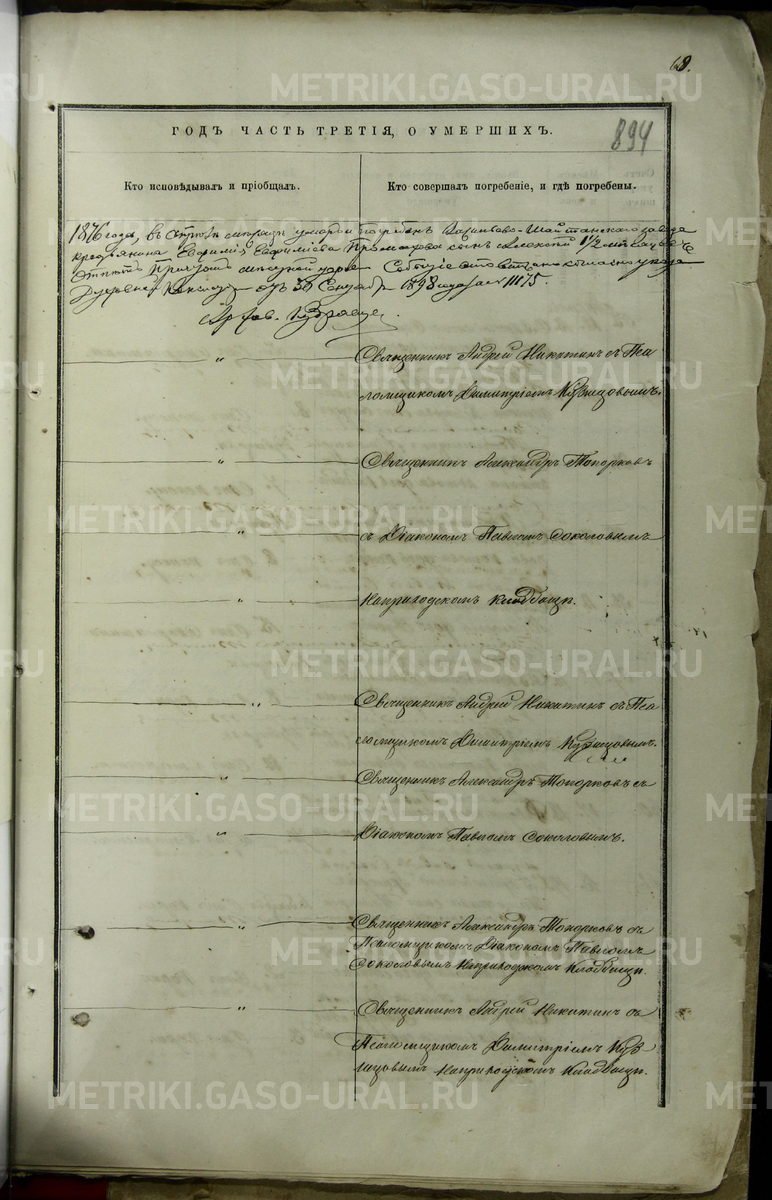 68.
894
ГОДЪ ЧАСТЬ ТРЕТІЯ, О УМЕРШИХЪ.
Кто исповѣдывалъ и пріобщалъ.
Кто совершалъ погребеніе, и гдѣ погребены.
1876 года, въ умеръ и погребенъ Шайтанскаго завода
крестьянина Евфимія Евфиміева сынъ Алексѣй 1 1/2
согласно указа
30 1898 года за № 11175.
Священникъ Андрей Никитинъ съ Пса
ломщикомъ Димитріемъ Кузнецовымъ.
Священникъ Александръ Топорковъ
съ Діакономъ Павломъ Соколовымъ
На приходскомъ кладбищѣ.
Священникъ Андрей Никитинъ съ Пса
ломщикомъ Димитріемъ Кузнецовымъ.
Священникъ Александръ Топорковъ съ
Діакономъ Павломъ Соколовымъ.
Священникъ Александръ Топорковъ съ
Псаломщикомъ Діакономъ Павломъ
Соколовымъ На приходскомъ кладбищѣ.
Священникъ Андрей Никитинъ съ
Псаломщикомъ Димитріемъ Куз
нецовымъ На приходскомъ кладбищѣ.
METRIKI.GASO-URAL.RU